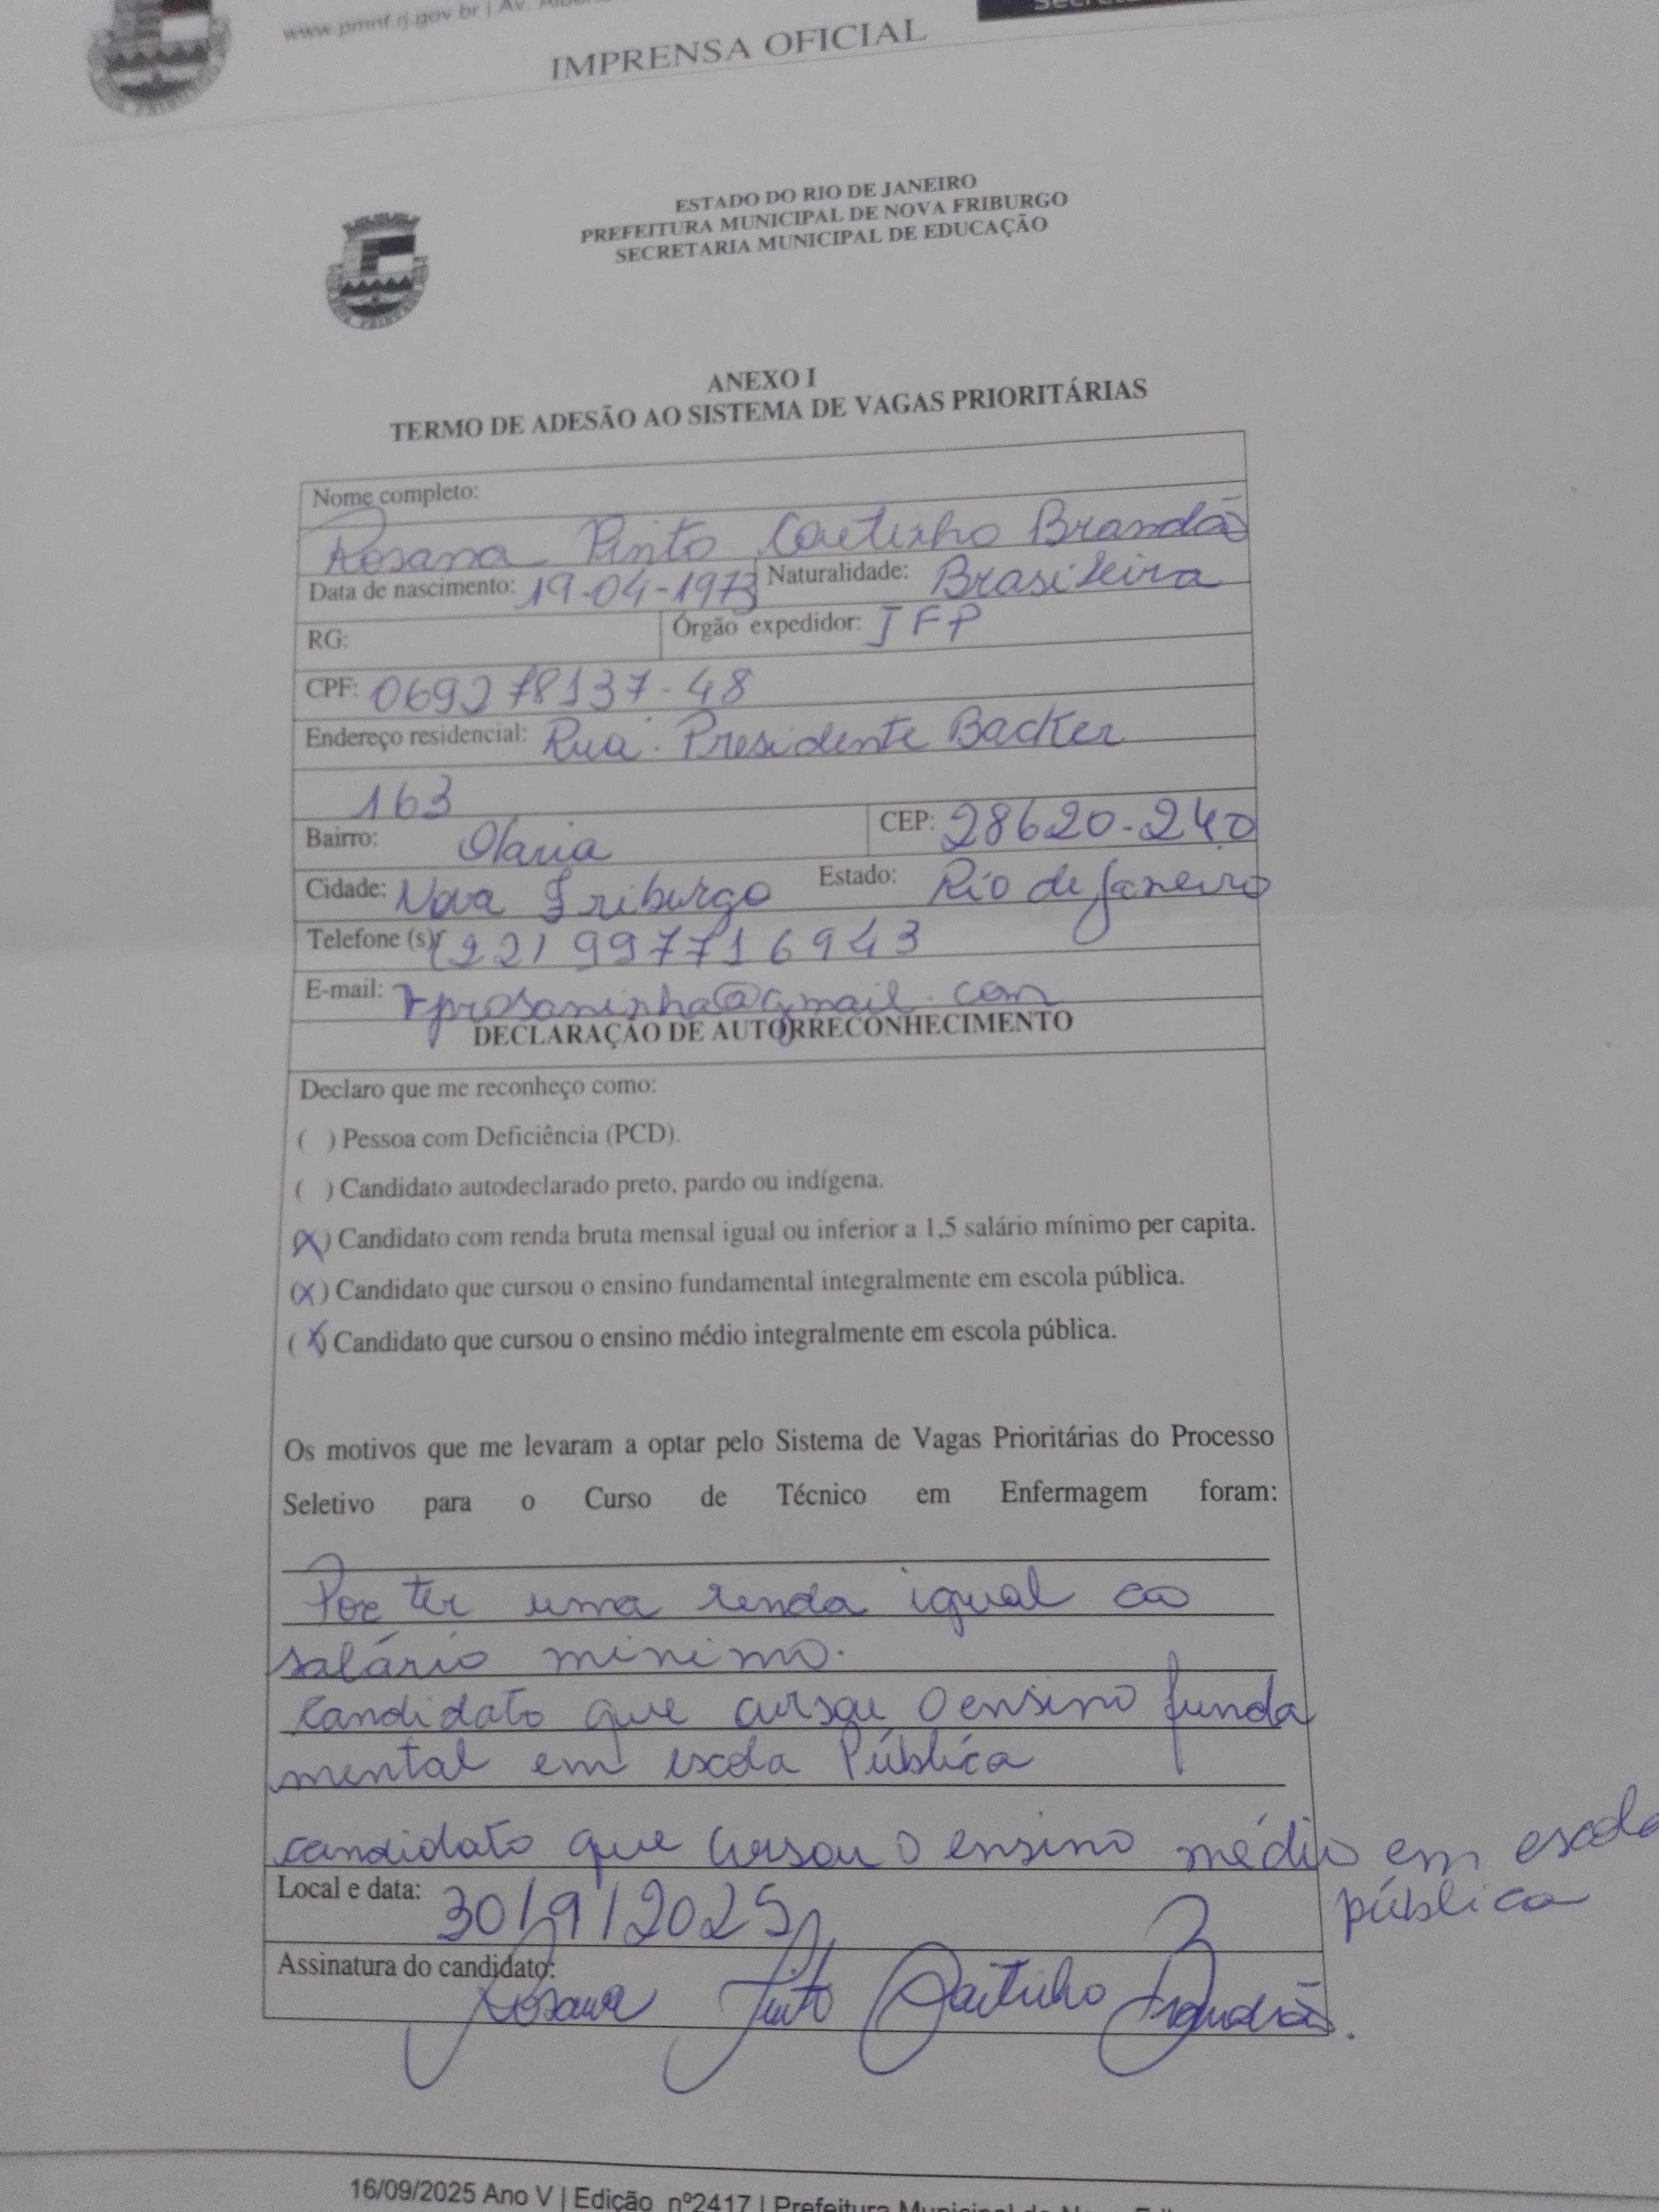 www.pmnf.rj.gov.br | Av.
IMPRENSA OFICIAL
ESTADO DO RIO DE JANEIRO
PREFEITURA MUNICIPAL DE NOVA FRIBURGO
SECRETARIA MUNICIPAL DE EDUCAÇÃO
ANEXO I
TERMO DE ADESÃO AO SISTEMA DE VAGAS PRIORITÁRIAS
Nome completo:
Rosana Pinto Coutinho Brandão
Data de nascimento: 19-04-1973 Naturalidade: Brasileira
RG: Órgão expedidor: IFP
CPF: 069278137-48
Endereço residencial: Rua: Presidente Backer
163
Bairro: Olaria CEP: 28620-240
Cidade: Nova Friburgo Estado: Rio de Janeiro
Telefone (s): (22) 997716943
E-mail: rprosaninha@gmail.com
DECLARAÇÃO DE AUTORRECONHECIMENTO
Declaro que me reconheço como:
( ) Pessoa com Deficiência (PCD).
( ) Candidato autodeclarado preto, pardo ou indígena.
(X) Candidato com renda bruta mensal igual ou inferior a 1,5 salário mínimo per capita.
(X) Candidato que cursou o ensino fundamental integralmente em escola pública.
(X) Candidato que cursou o ensino médio integralmente em escola pública.
Os motivos que me levaram a optar pelo Sistema de Vagas Prioritárias do Processo
Seletivo para o Curso de Técnico em Enfermagem foram:
Por ter uma renda igual ao
salário minimo.
Candidato que cursou o ensino funda
mental em escola Pública
candidato que cursou o ensino médio em escola
pública
Local e data: 30/9/2025
Assinatura do candidato: Rosana Pinto Coutinho Brandão.
16/09/2025 Ano V | Edição nº2417 | Prefeitura Municipal de Nova